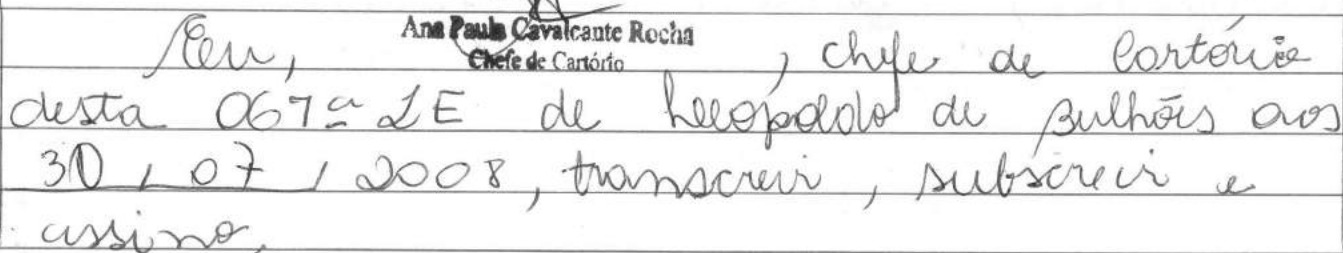 Ana Paula Cavalcante Rocha
Chefe de Cartório
Eu, , chefe de Cartório
desta 067ª ZE de Leopoldo de Bulhões aos
30 / 07 / 2008, transcrevi, subscrevi e
assino.